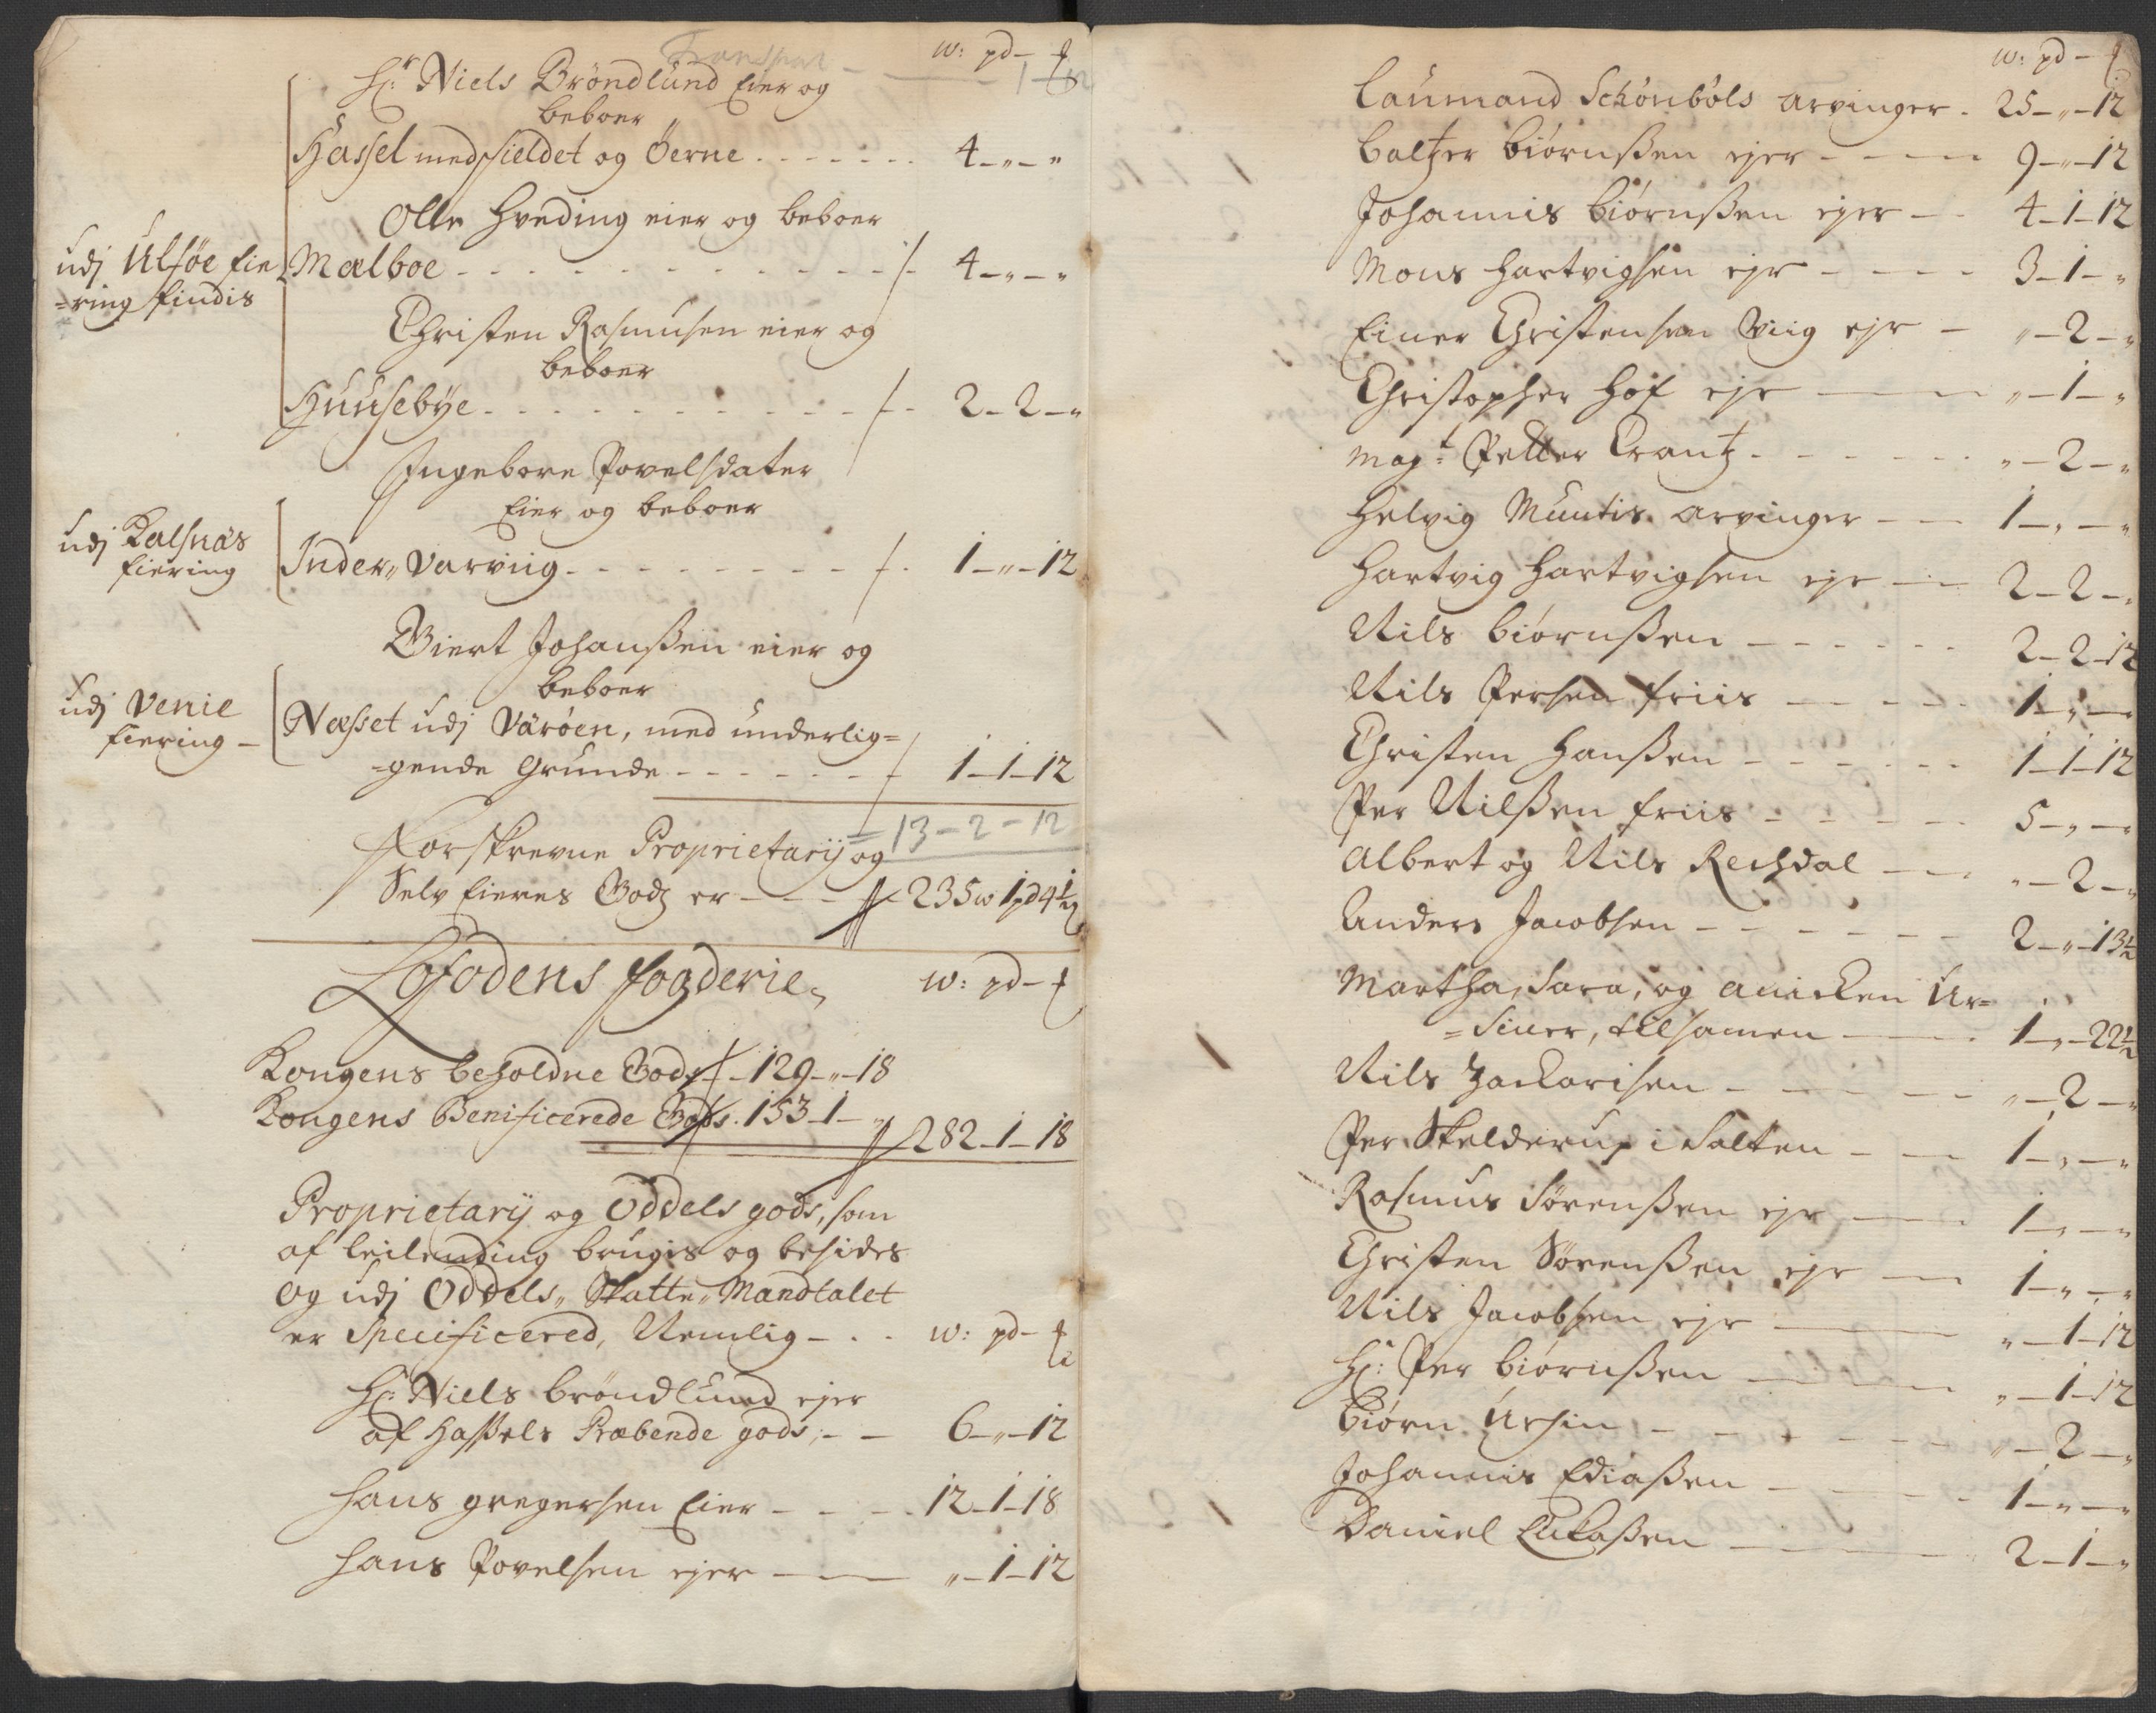 Transport - 1 - 12
w: pd - ₰
Hr: Niels Bröndlund Eier og
beboer
Hassel med fieldet og Öerne - - - - 4 - „ - „
Olle Hveding eier og beboer
udj Ulföe fie
=ring findis
Mælboe - - - - - - 4 - „ - „
Christen Rasmusen eier og
beboer
Huusebÿe - - - - - - 2 - 2 - „
Ingebore Povelsdater
Eier og beboer
udj Kalsnæs
fiering
Inder„ Varviig - - - - - 1 - „ - 12
Giert Johanßen eier og
beboer
udj Venie
fiering -
Næsset udj Väröen, med underlig=
=gende Grunde - - - - - 1 - 1 - 12
= 13 - 2 - 12
Forskrevne Proprietarij og
Selv Eieres Godz er - - - 235 w 1 pd 4 ½ ₰
Lofodens fogderie, w: pd - ₰
Kongens beholdne Gods - 129 - „ - 18
Kongens Benificerede Gods. 153 - 1 - „
282 - 1 - 18
Proprietarij og Oddels gods, som
af leilending brugis og besides
og udj Oddels„ Skatte„ Mandtalet
er Specificered, Nemlig - . . w: pd - ₰
Hr: Niels bröndlund ejer
af Haßels Præbende gods, - - 6 - „ - 12
Hans gregersen Eier - - - 12 - 1 - 18
Hans Povelsen ejer - - „ - 1 - 12
w: pd - ₰
Laumand Schönböls arvinger . 25 - „ - 12
baltzer biörnßen ejer - - - - 9 - „ - 12
Johannis biörnßen ejer - - 4 - 1 - 12
Mons Hartvigsen ejr - - - - 3 - 1 - „
Einer Christensen Viig ejr - „ - 2 - „
Christopher Hof eje - - „ - 1 - „
Magt: Petter Crantz - - - - „ - 2 - „
Helvig Muntis arvinger - - 1 - „ - „
Hartvig Hartvigsen eje - - 2 - 2 - „
Nils biörnßen - - - - - - 2 - 2 - 12
Nils Persen friis - - - - - 1 - „ - „
Christen Hanßen - - - - - - 1 - 1 - 12
Per Nilßen friis - - - - - 5 - „ - „
Albert og Nils Rechdal - - „ - 2 - „
Anders Jacobsen - - - - - - 2 - „ - 13½
Martha, Sara, og Anicken Ur=
=siner, tilsamen - - 1 - „ - 22½
Nils Zackarisen - - - - - „ - 2 - „
Per Skelderup i Salten - - 1 - „ - „
Rasmus Sörenßen ejr - - 1 - „ - „
Christen Sörenßen eje - - 1 - „ - „
Nils Jacobsen eje - - „ - 1 - 12
Hr: Per biörnßen - - - „ - 1 - 12
Biörn Ursin - - - - - - „ - 2 - „
Johannis Ediaßen - - - - 1 - „ - „
Daniel Lukaßen - - - 2 - 1 - „